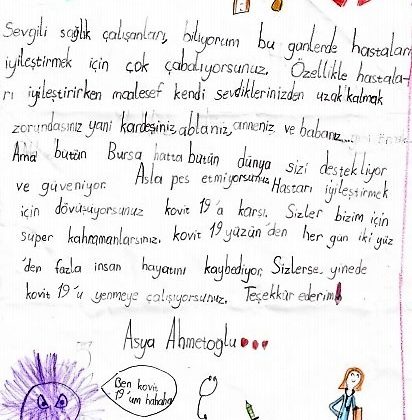 Sevgili sağlık çalışanları, biliyorum bu günlerde hastaları
iyileştirmek için çok çabalıyorsunuz. Özellikle hastala-
rı iyileştirirken maalesef kendi sevdiklerinizden uzak kalmak
zorundasınız yani kardeşiniz, ablanız, anneniz ve babanız...
Ama bütün Bursa hatta bütün dünya sizi destekliyor
ve güveniyor. Asla pes etmiyorsunuz. Hastarı iyileştirmek
için dövüşüyorsunuz kovit 19'a karşı. Sizler bizim için
süper kahramanlarsınız. kovit 19 yüzün'den her gün iki yüz
'den fazla insan hayatını kaybediyor. Sizlerse yinede
kovit 19'u yenmeye çalışıyorsunuz. Teşekkür ederim!
Asya Ahmetoglu
Ben kovit
19'um hahaha